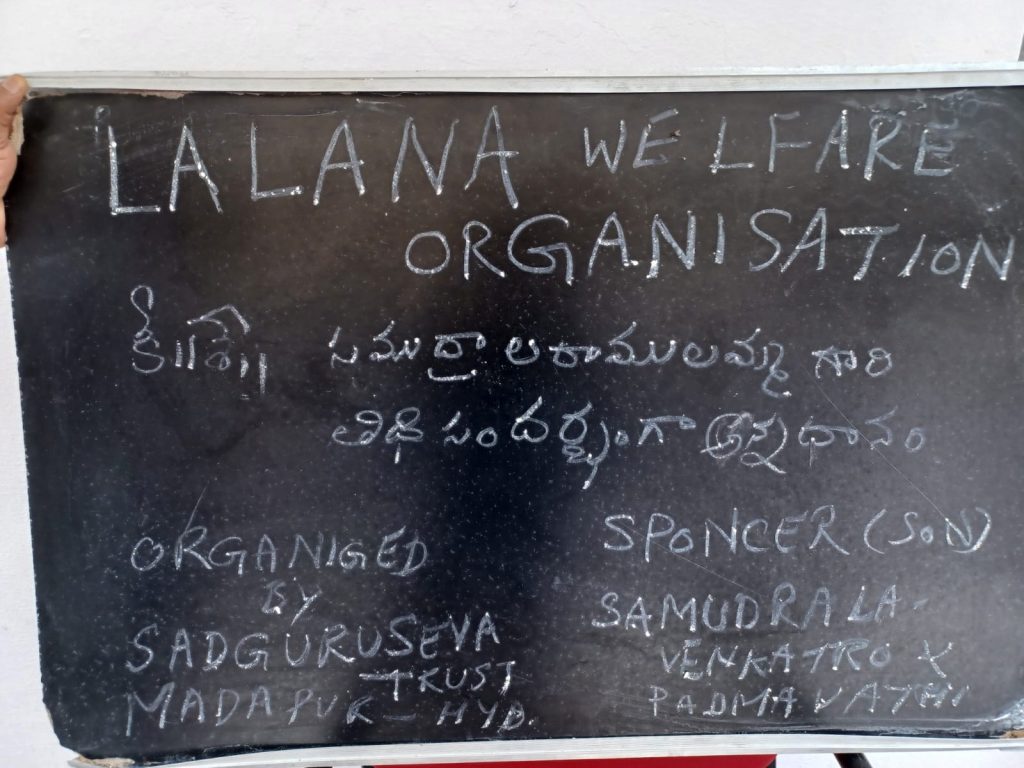 LALANA WELFARE
ORGANISATION
కీ॥శే॥ సముద్రాల రాములమ్మ గారి
తిథి సందర్భంగా అన్నదానం
ORGANIGED
BY
SADGURUSEVA
TRUST
MADAPUR - HYD.
SPONCER (SON)
SAMUDRALA-
VENKATRO &
PADMAVATHI